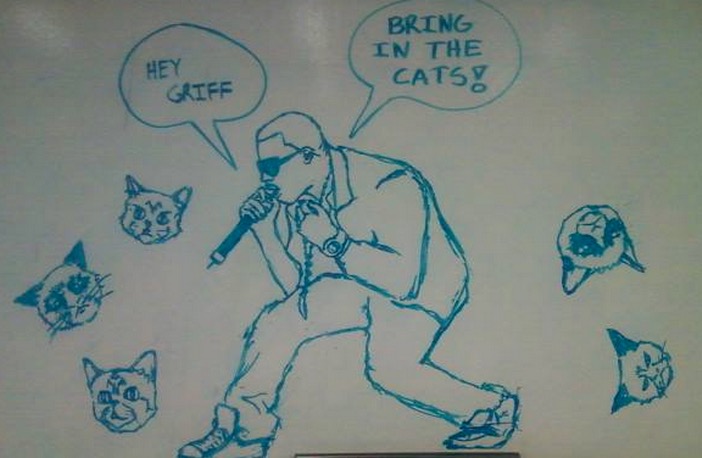 HEY
GRIFF
BRING
IN THE
CATS!